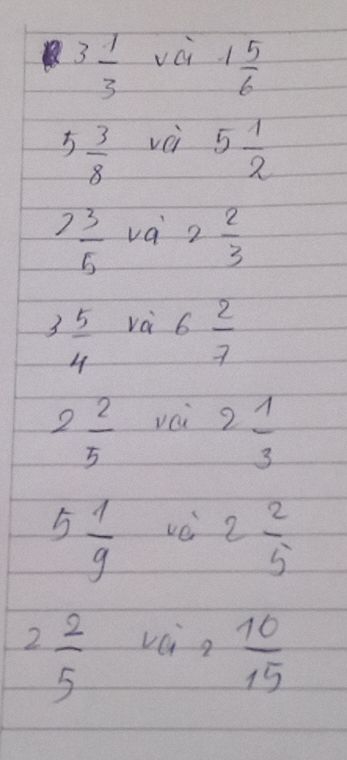 3 1/3 và 1 5/6
5 3/8 và 5 1/2
2 3/5 và 2 2/3
3 5/4 và 6 2/7
2 2/5 và 2 1/3
5 1/9 và 2 2/5
2 2/5 và 2 10/15